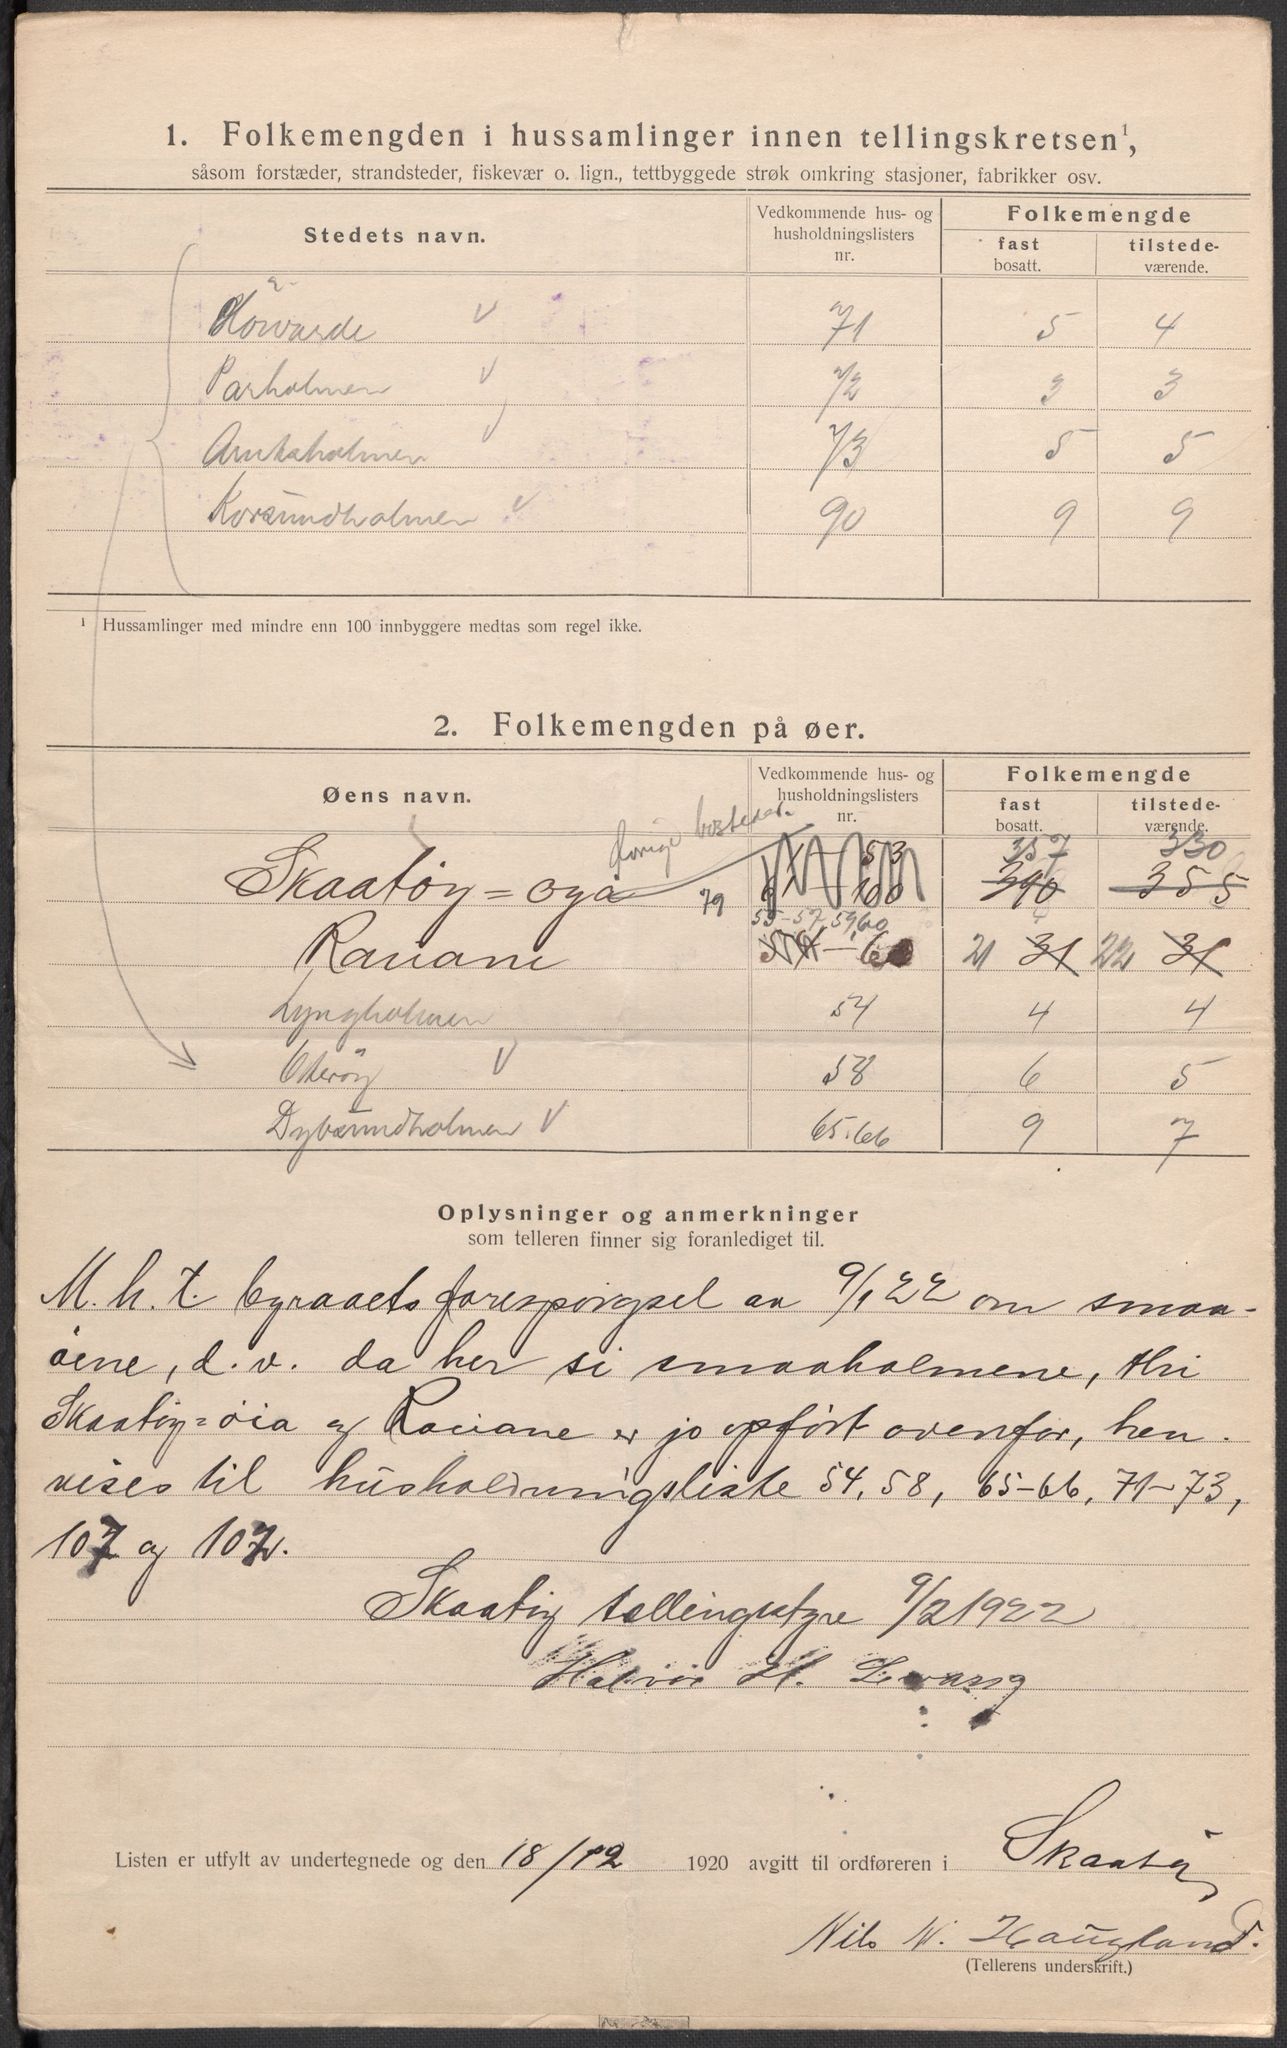 1. Folkemengden i hussamlinger innen tellingskretsen¹,
såsom forstæder, strandsteder, fiskevær o. lign., tettbyggede strøk omkring stasjoner, fabrikker osv.
Stedets navn.
Vedkommende hus- og husholdningslisters nr.
Folkemengde
fast bosatt.
tilstede-værende.
71 5 4
Parholmen V 72 3 3
Arnholmen V 73 5 5
Korsundholmen V 90 9 9
¹ Hussamlinger med mindre enn 100 innbyggere medtas som regel ikke.
2. Folkemengden på øer.
Øens navn.
Vedkommende hus- og husholdningslisters nr.
Folkemengde
fast bosatt.
tilstede-værende.
øvrige bosteder.
357 330
Skaatøy=øya 79 1 – 53 390 355
61 – 100
55-57, 59, 60
Rauane 21 31 22 31
Lyngholmen 54 4 4
Oterøy V 58 6 5
Dybsundholmen V 65.66 9 7
Oplysninger og anmerkninger
som telleren finner sig foranlediget til.
M. h. t. byraaets forespørgsel av 9/1 22 om smaa-
øene, d. v. da her si smaaholmene, thi
Skaatøy=øia og Rauane er jo opført ovenfor, hen-
vises til husholdningsliste 54, 58, 65-66, 71-73,
107 og 102.
Skaatøy tellingsstyre 9/2 1922
Halvor H.
Listen er utfylt av undertegnede og den 18/12 1920 avgitt til ordføreren i Skaatøy
Nils N. Haugland
(Tellerens underskrift.)